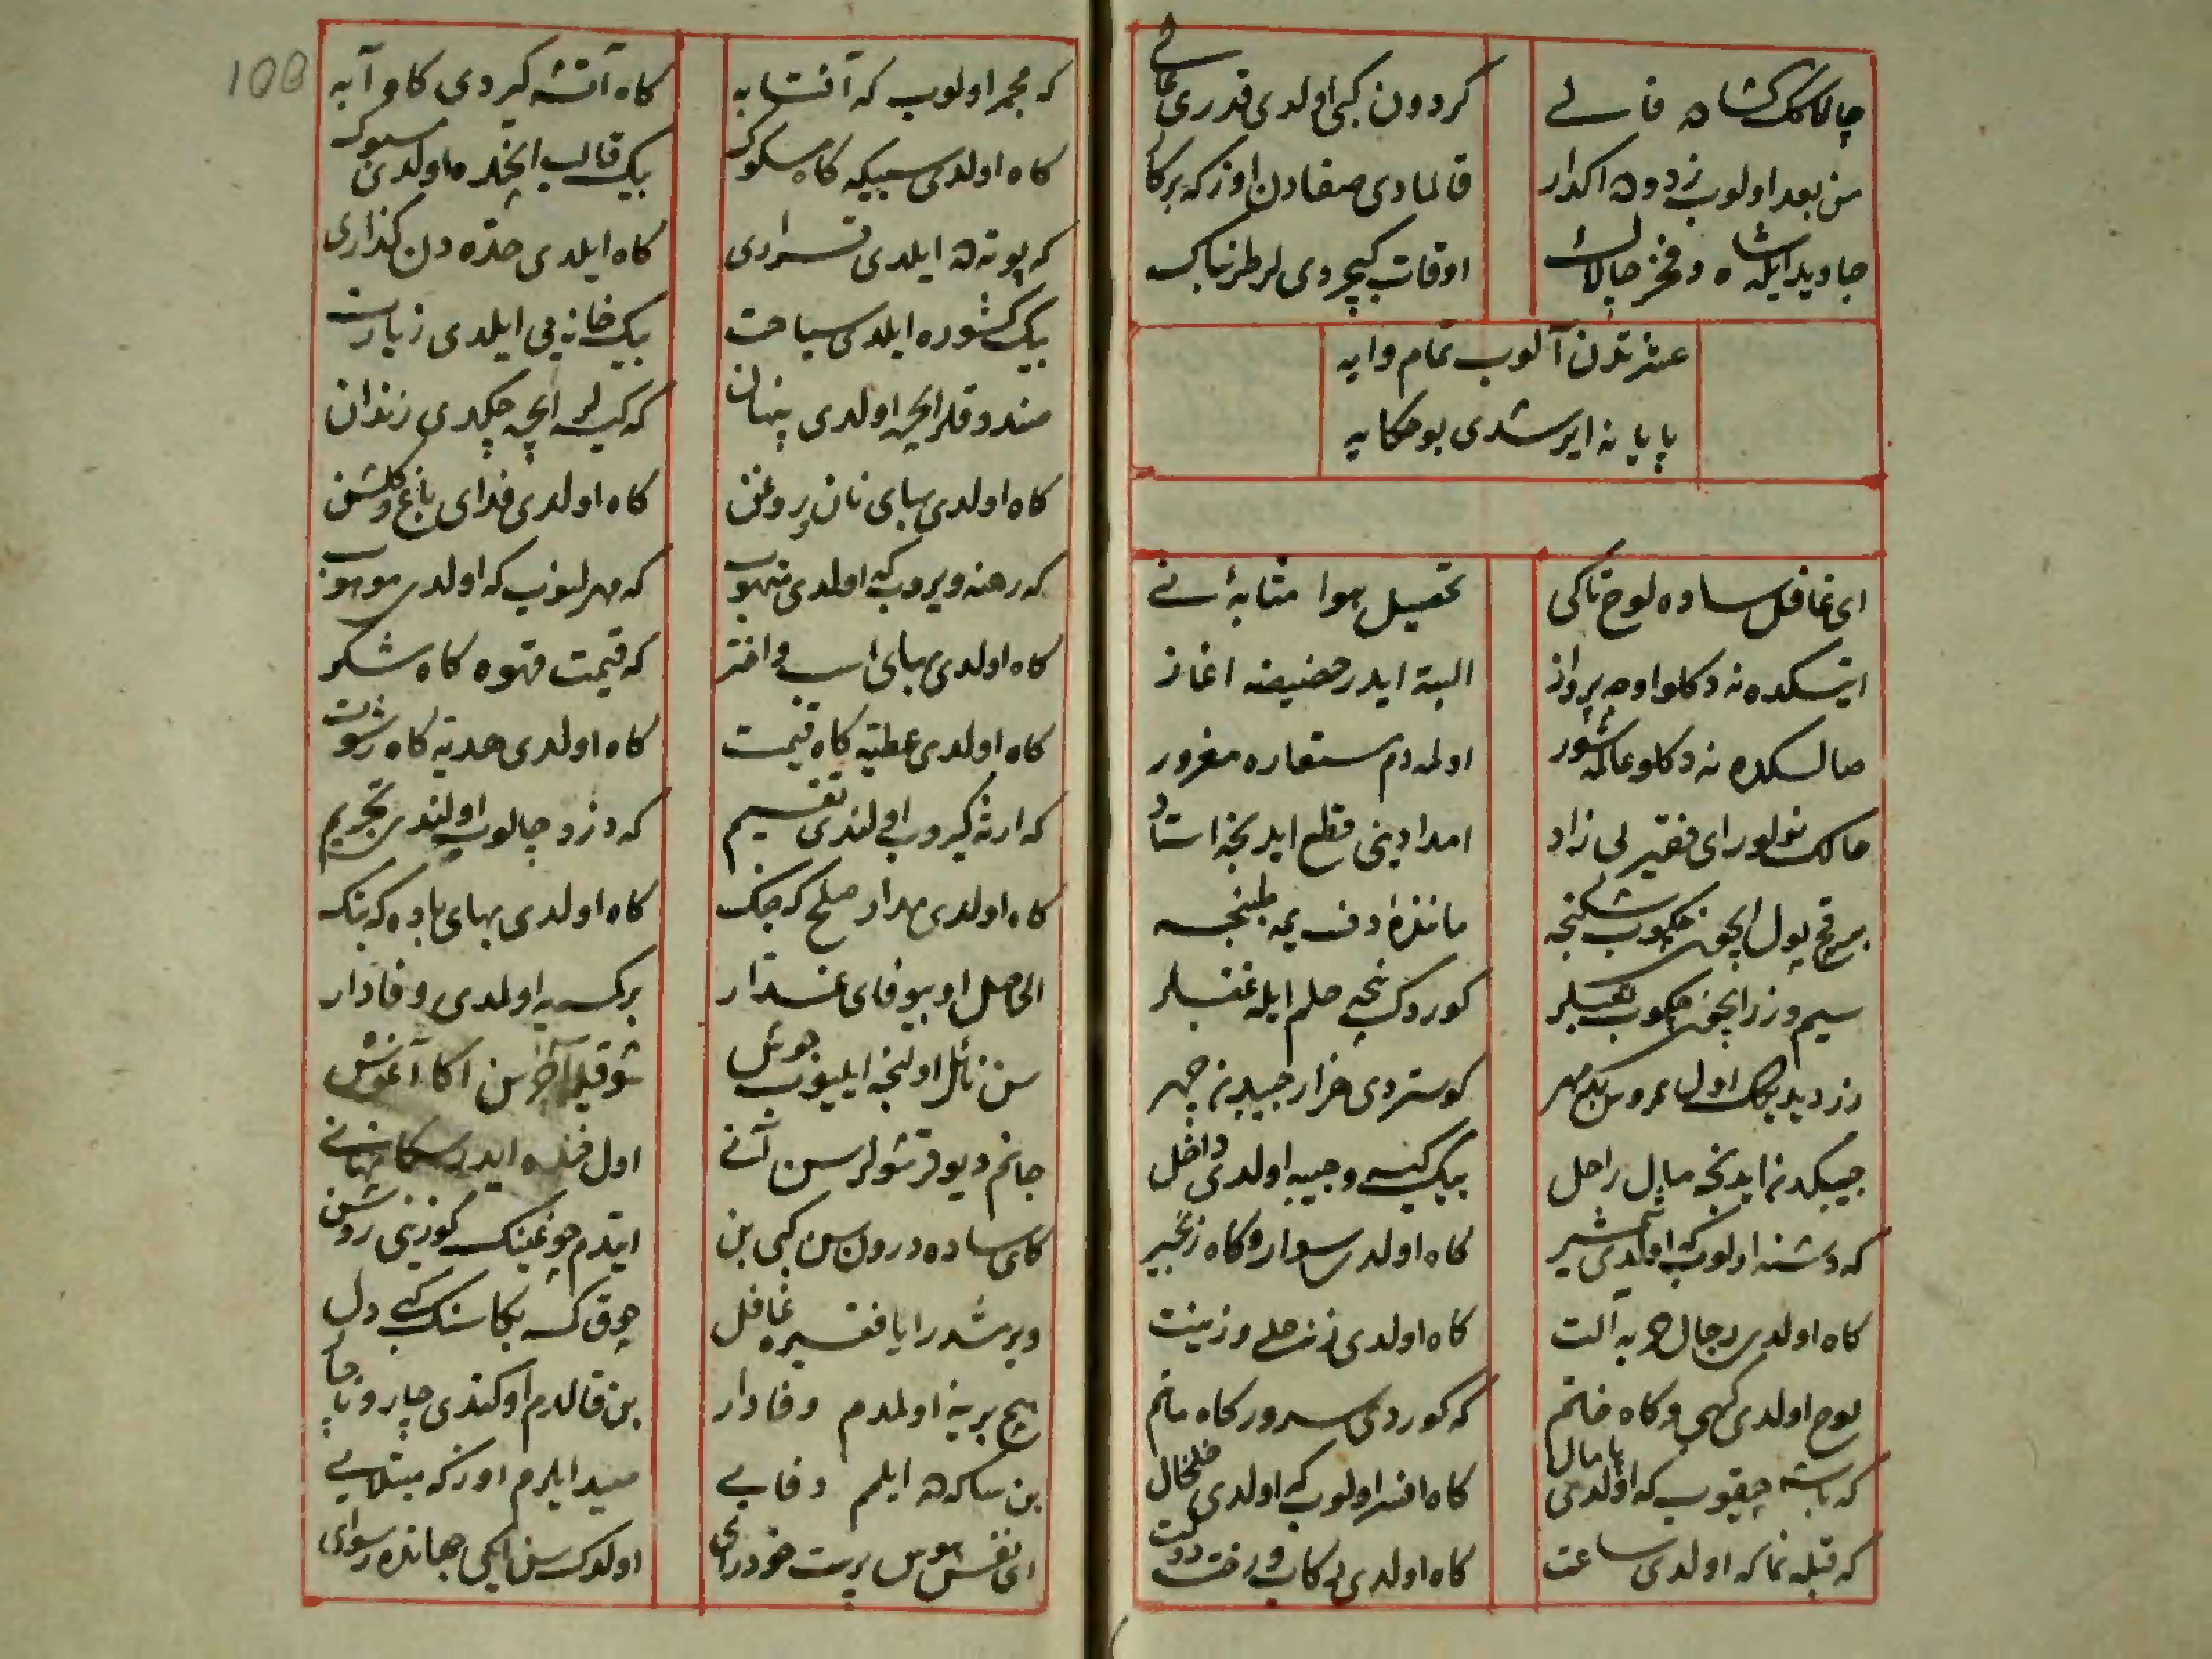 چالاکنک کشاده فالی گردون کبی اولدی قدری عالی
من بعد اولوب زدوده اکدار قالمادی صفادن اوزکه برکار
جاوید ایله شاه و فخر چالاک اوقات کیچردی لر طربناک
عشرتدن آلوب تمام وایه
پایانه ایرشدی بو حکایه
ای غافل ساده لوح تاکی تحصیل هوا مثابهٔ نی
ایتسکده نه دکلو اوجه پرواز البته ایدر حضیضه اغاز
صالسکده نه دکلو عالمه شور اولمه دم مستعاره مغرور
حالک نولور ای فقیر بی زاد امدادینی قطع ایدیجه استاد
بر قچ پول ایچون چکوب شکنجه مانندهٔ دف یمه طبنجه
سیم و زر ایچون چکوب تعبلر کوردک نچه حلم ایله غضبلر
زر دیدیکک اول عروس بدمهر کوستردی هزار جیبدن چهر
جیبکدن ایدنجه مال راحل بیک کیسه و جیبه اولدی داخل
که دشنه اولوب که اولدی شمشیر کاه اولدی سوار و کاه زنجیر
کاه اولدی رجال حربه آلت کاه اولدی زنه حلی و زینت
لوح اولدی کهی و کاه خاتم که کوردی سرور کاه ماتم
که باشه چیقوب که اولدی پامال کاه افسر اولوب که اولدی خلخال
که قبله نما که اولدی ساعت کاه اولدی رکاب و رخت دولت
که مجمر اولوب که آفتابه کاه آتشه کیردی کاه آبه
کاه اولدی سبیکه کاه مسکوک بیک قالب ایچنده اولدی مسبوک
که پوته ده ایلدی قراری کاه ایلدی حدّه دن کذاری
بیک کشورده ایلدی سیاحت بیک خانه یی ایلدی زیارت
صندوقلر ایچره اولدی پنهان که کیسه لر ایچره چکدی زندان
کاه اولدی بهای نان و روغن کاه اولدی فدای باغ و کلشن
که رهنه ویروب که اولدی منهوب که مهرلنوب که اولدی موهوب
کاه اولدی بهای اسب و استر که قیمت قهوه کاه شکر
کاه اولدی عطیه کاه قیمت کاه اولدی هدیه کاه رشوت
که ارثه کیروب اولندی تقسیم که دزد چالوب اولندی تجریم
کاه اولدی مدار صلح که جنک کاه اولدی بهای باده که بنک
الحاصل او بیوفای غدّار برکسیه اولمدی وفادار
سن نائل اولنجه ایلیوب جوش شوقیله آچرسن اکا آغوش
جانم دیو قوتشولرسن آنی اول خنده ایدر سکا نهانی
کای ساده درون سن کبی بن ایتدم چوغینک کوزینی روشن
ویرشدر ایا فقیر غافل چوق کسه بکا سنک کبی دل
هیچ برینه اولمدم وفادار بن قالدم او کتدی چار و ناچار
بن سکاده ایلمم وفایی صید ایلرم اوزکه مبتلایی
ای نفس هوس پرست خودرای اولدک سن ایکی جهانده رسوای
108